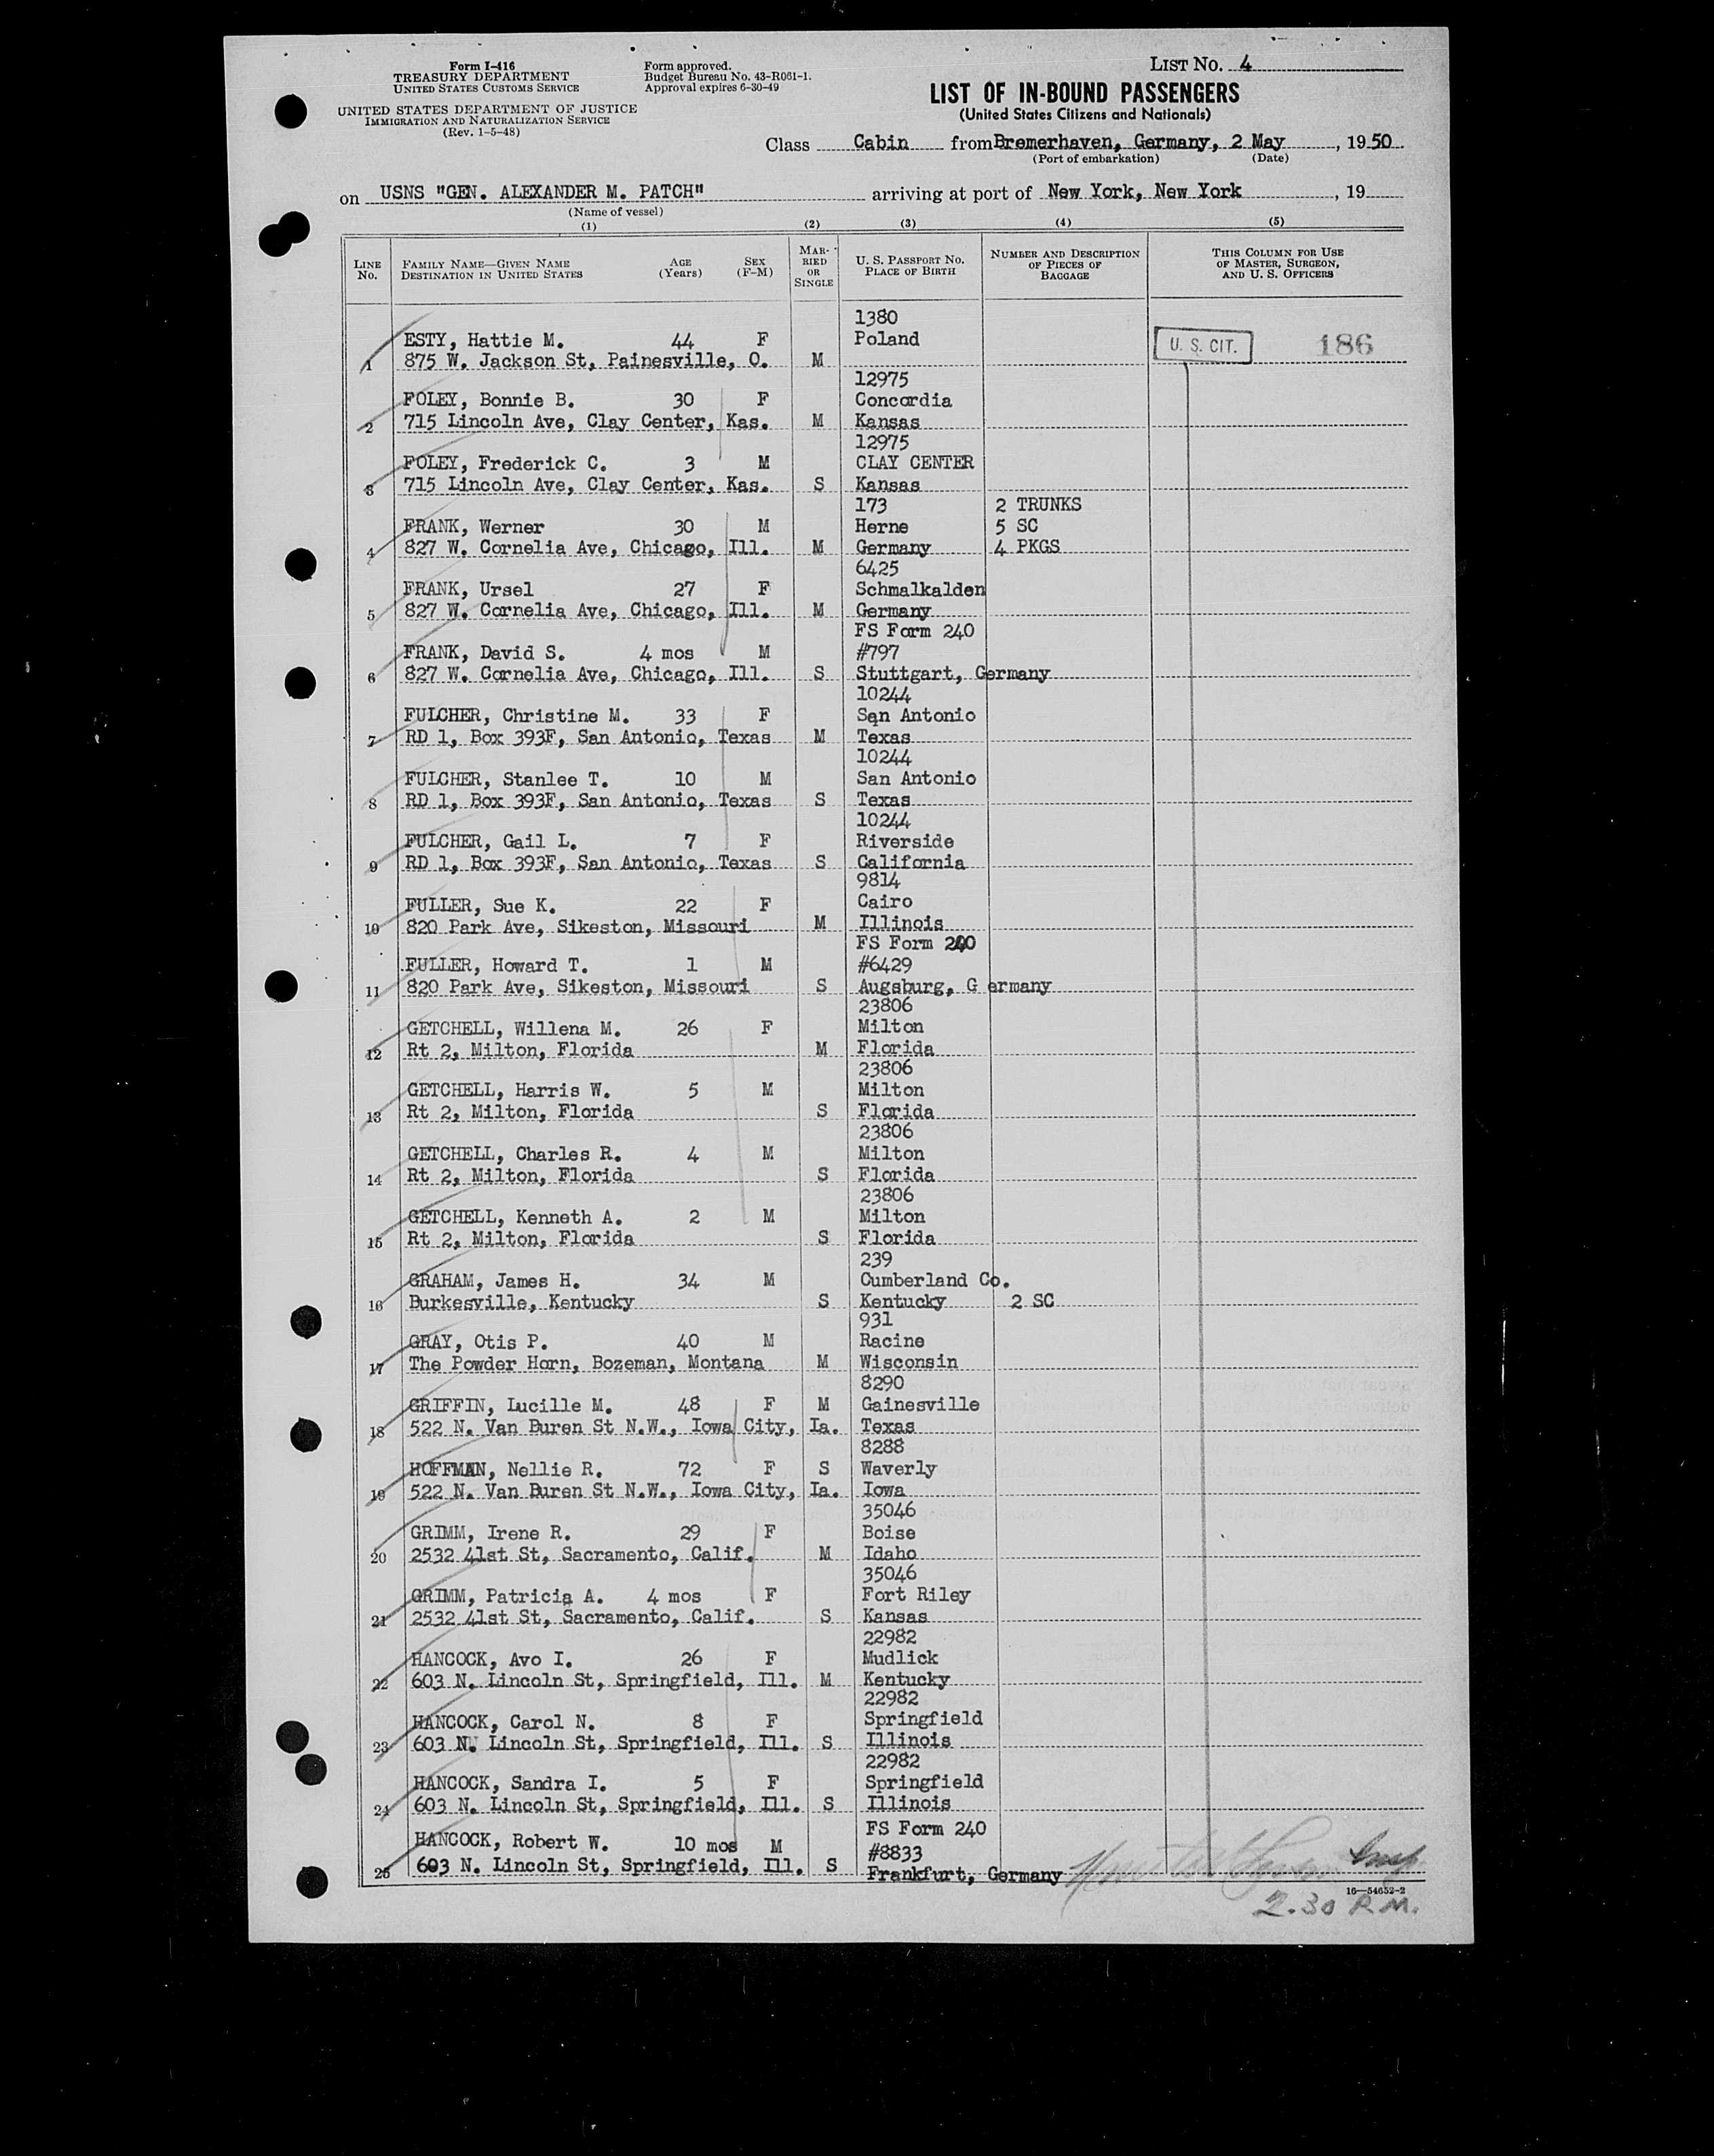 Form I-416
TREASURY DEPARTMENT
UNITED STATES CUSTOMS SERVICE
UNITED STATES DEPARTMENT OF JUSTICE
IMMIGRATION AND NATURALIZATION SERVICE
(Rev. 1-5-48)
Form approved.
Budget Bureau No. 43-R061-1.
Approval expires 6-30-49
LIST No. 4
LIST OF IN-BOUND PASSENGERS
(United States Citizens and Nationals)
Class Cabin from Bremerhaven, Germany, 2 May, 1950
(Port of embarkation) (Date)
on USNS "GEN. ALEXANDER M. PATCH" arriving at port of New York, New York, 19
(Name of vessel)
(1) (2) (3) (4) (5)
LINE No. FAMILY NAME—GIVEN NAME DESTINATION IN UNITED STATES AGE (Years) SEX (F-M) MARRIED OR SINGLE U. S. PASSPORT NO. PLACE OF BIRTH NUMBER AND DESCRIPTION OF PIECES OF BAGGAGE THIS COLUMN FOR USE OF MASTER, SURGEON, AND U. S. OFFICERS
1380
ESTY, Hattie M. 44 F Poland U. S. CIT. 186
1 875 W. Jackson St, Painesville, O. M
12975
FOLEY, Bonnie B. 30 F Concordia
2 715 Lincoln Ave, Clay Center, Kas. M Kansas
12975
FOLEY, Frederick C. 3 M CLAY CENTER
3 715 Lincoln Ave, Clay Center, Kas. S Kansas
173 2 TRUNKS
FRANK, Werner 30 M Herne 5 SC
4 827 W. Cornelia Ave, Chicago, Ill. M Germany 4 PKGS
6425
FRANK, Ursel 27 F Schmalkalden
5 827 W. Cornelia Ave, Chicago, Ill. M Germany
FS Form 240
FRANK, David S. 4 mos M #797
6 827 W. Cornelia Ave, Chicago, Ill. S Stuttgart, Germany
10244
FULCHER, Christine M. 33 F San Antonio
7 RD 1, Box 393F, San Antonio, Texas M Texas
10244
FULCHER, Stanlee T. 10 M San Antonio
8 RD 1, Box 393F, San Antonio, Texas S Texas
10244
FULCHER, Gail L. 7 F Riverside
9 RD 1, Box 393F, San Antonio, Texas S California
9814
FULLER, Sue K. 22 F Cairo
10 820 Park Ave, Sikeston, Missouri M Illinois
FS Form 240
FULLER, Howard T. 1 M #6429
11 820 Park Ave, Sikeston, Missouri S Augsburg, G ermany
23806
GETCHELL, Willena M. 26 F Milton
12 Rt 2, Milton, Florida M Florida
23806
GETCHELL, Harris W. 5 M Milton
13 Rt 2, Milton, Florida S Florida
23806
GETCHELL, Charles R. 4 M Milton
14 Rt 2, Milton, Florida S Florida
23806
GETCHELL, Kenneth A. 2 M Milton
15 Rt 2, Milton, Florida S Florida
239
GRAHAM, James H. 34 M Cumberland Co.
16 Burkesville, Kentucky S Kentucky 2 SC
931
GRAY, Otis P. 40 M Racine
17 The Powder Horn, Bozeman, Montana M Wisconsin
8290
GRIFFIN, Lucille M. 48 F M Gainesville
18 522 N. Van Buren St N.W., Iowa City, Ia. Texas
8288
HOFFMAN, Nellie R. 72 F S Waverly
19 522 N. Van Buren St N.W., Iowa City, Ia. Iowa
35046
GRIMM, Irene R. 29 F Boise
20 2532 41st St, Sacramento, Calif. M Idaho
35046
GRIMM, Patricia A. 4 mos F Fort Riley
21 2532 41st St, Sacramento, Calif. S Kansas
22982
HANCOCK, Avo I. 26 F Mudlick
22 603 N. Lincoln St, Springfield, Ill. M Kentucky
22982
HANCOCK, Carol N. 8 F Springfield
23 603 N. Lincoln St, Springfield, Ill. S Illinois
22982
HANCOCK, Sandra I. 5 F Springfield
24 603 N. Lincoln St, Springfield, Ill. S Illinois
FS Form 240
HANCOCK, Robert W. 10 mos M #8833
25 603 N. Lincoln St, Springfield, Ill. S Frankfurt, Germany
16—54652-2
2.30 P.M.